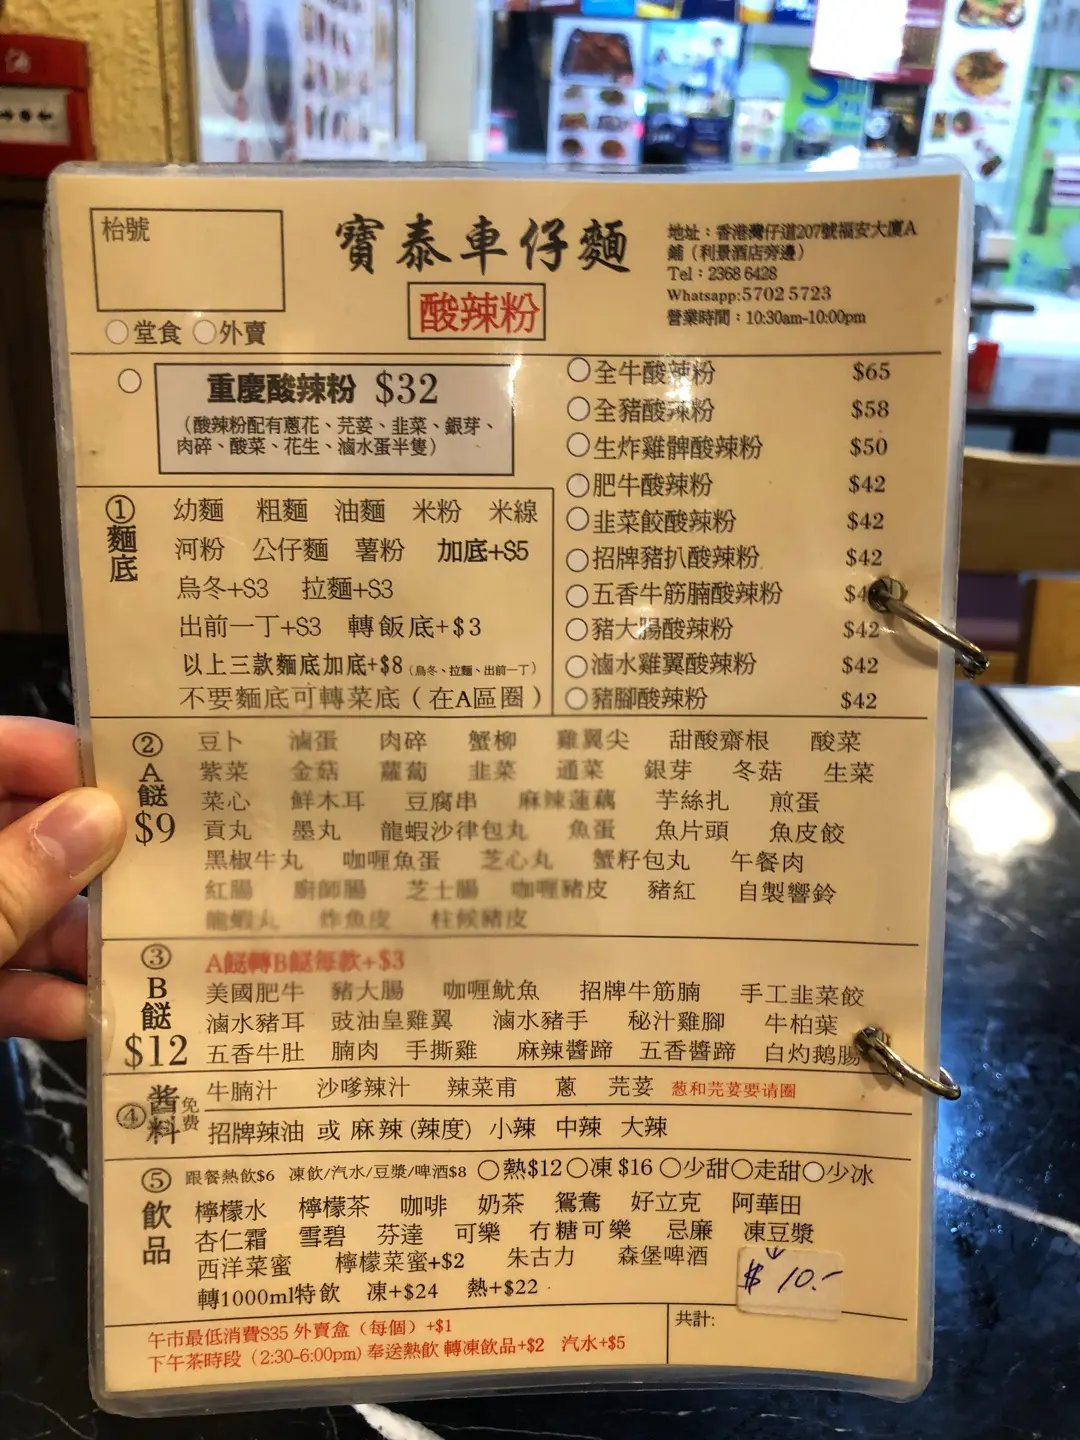 枱號
寶泰車仔麵
酸辣粉
地址：香港灣仔道207號福安大廈A
鋪（利景酒店旁邊）
Tel：2368 6428
Whatsapp:5702 5723
營業時間：10:30am-10:00pm
○堂食 ○外賣
重慶酸辣粉 $32
（酸辣粉配有蔥花、芫荽、韭菜、銀芽、
肉碎、酸菜、花生、滷水蛋半隻）
○全牛酸辣粉 $65
○全豬酸辣粉 $58
○生炸雞髀酸辣粉 $50
○肥牛酸辣粉 $42
○韭菜餃酸辣粉 $42
○招牌豬扒酸辣粉 $42
○五香牛筋腩酸辣粉 $4
○豬大腸酸辣粉 $42
○滷水雞翼酸辣粉 $42
○豬腳酸辣粉 $42
①麵底
幼麵 粗麵 油麵 米粉 米線
河粉 公仔麵 薯粉 加底+S5
烏冬+S3 拉麵+S3
出前一丁+S3 轉飯底+$3
以上三款麵底加底+$8（烏冬、拉麵、出前一丁）
不要麵底可轉菜底（在A區圈）
②A餸$9
豆卜 滷蛋 肉碎 蟹柳 雞翼尖 甜酸齋根 酸菜
紫菜 金菇 蘿蔔 韭菜 通菜 銀芽 冬菇 生菜
菜心 鮮木耳 豆腐串 麻辣蓮藕 芋絲扎 煎蛋
貢丸 墨丸 龍蝦沙律包丸 魚蛋 魚片頭 魚皮餃
黑椒牛丸 咖喱魚蛋 芝心丸 蟹籽包丸 午餐肉
紅腸 廚師腸 芝士腸 咖喱豬皮 豬紅 自製響鈴
龍蝦丸 炸魚皮 柱候豬皮
③B餸$12
A餸轉B餸每款+$3
美國肥牛 豬大腸 咖喱魷魚 招牌牛筋腩 手工韭菜餃
滷水豬耳 豉油皇雞翼 滷水豬手 秘汁雞腳 牛柏葉
五香牛肚 腩肉 手撕雞 麻辣醬蹄 五香醬蹄 白灼鹅腸
④酱料 免費
牛腩汁 沙嗲辣汁 辣菜甫 蔥 芫荽 葱和芫荽要请圈
招牌辣油 或 麻辣 (辣度) 小辣 中辣 大辣
⑤飲品
跟餐熱飲$6 凍飲/汽水/豆漿/啤酒$8 ○熱$12○凍 $16 ○少甜○走甜○少冰
檸檬水 檸檬茶 咖啡 奶茶 鴛鴦 好立克 阿華田
杏仁霜 雪碧 芬達 可樂 冇糖可樂 忌廉 凍豆漿
西洋菜蜜 檸檬菜蜜+$2 朱古力 森堡啤酒
$ 10.-
轉1000ml特飲 凍+$24 熱+$22
午市最低消費S35 外賣盒（每個）+$1
下午茶時段（2:30-6:00pm) 奉送熱飲 轉凍飲品+$2 汽水+$5
共計: